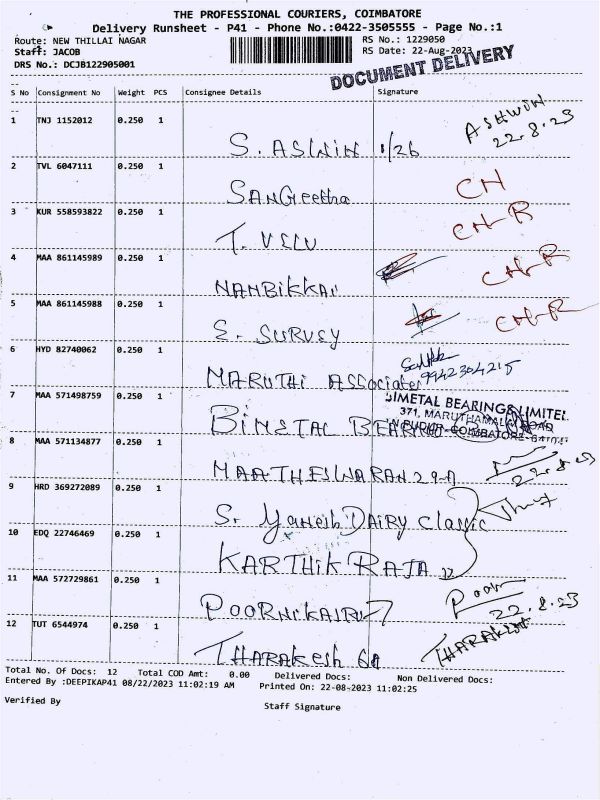 THE PROFESSIONAL COURIERS, COIMBATORE
Delivery Runsheet - P41 - Phone No.:0422-3505555 - Page No.:1
Route: NEW THILLAI NAGAR RS No.: 1229050
Staff: JACOB RS Date: 22-Aug-2023
DRS No.: DCJB122905001
DOCUMENT DELIVERY
S No Consignment No Weight PCS Consignee Details Signature
1 TNJ 1152012 0.250 1
ASHWIN
22.8.23
S. ASWIN 1/26
2 TVL 6047111 0.250 1
SANGeetha CH
3 KUR 558593822 0.250 1
T. VELU CH-R
4 MAA 861145989 0.250 1
NAMBIKKAI CH-R
5 MAA 861145988 0.250 1
E. SURVEY CH-R
6 HYD 82740062 0.250 1
MARUTHI ASSOCIATES 9942304215
7 MAA 571498759 0.250 1
BIMETAL BEARINGS LIMITED
371, MARUTHAMALAI ROAD
COIMBATORE
BIMETAL BEARING
8 MAA 571134877 0.250 1
MAATHESWARAN 29-A 22.8.23
9 HRD 369272089 0.250 1
S. Ganesh DAIRY Classic
10 EDQ 22746469 0.250 1
KARTHIK RAJA 17
11 MAA 572729861 0.250 1
POORNIKA
22.8.23
12 TUT 6544974 0.250 1
THARAKESH
THARAKesh 6A
Total No. Of Docs: 12 Total COD Amt: 0.00 Delivered Docs: Non Delivered Docs:
Entered By :DEEPIKAP41 08/22/2023 11:02:19 AM Printed On: 22-08-2023 11:02:25
Verified By Staff Signature